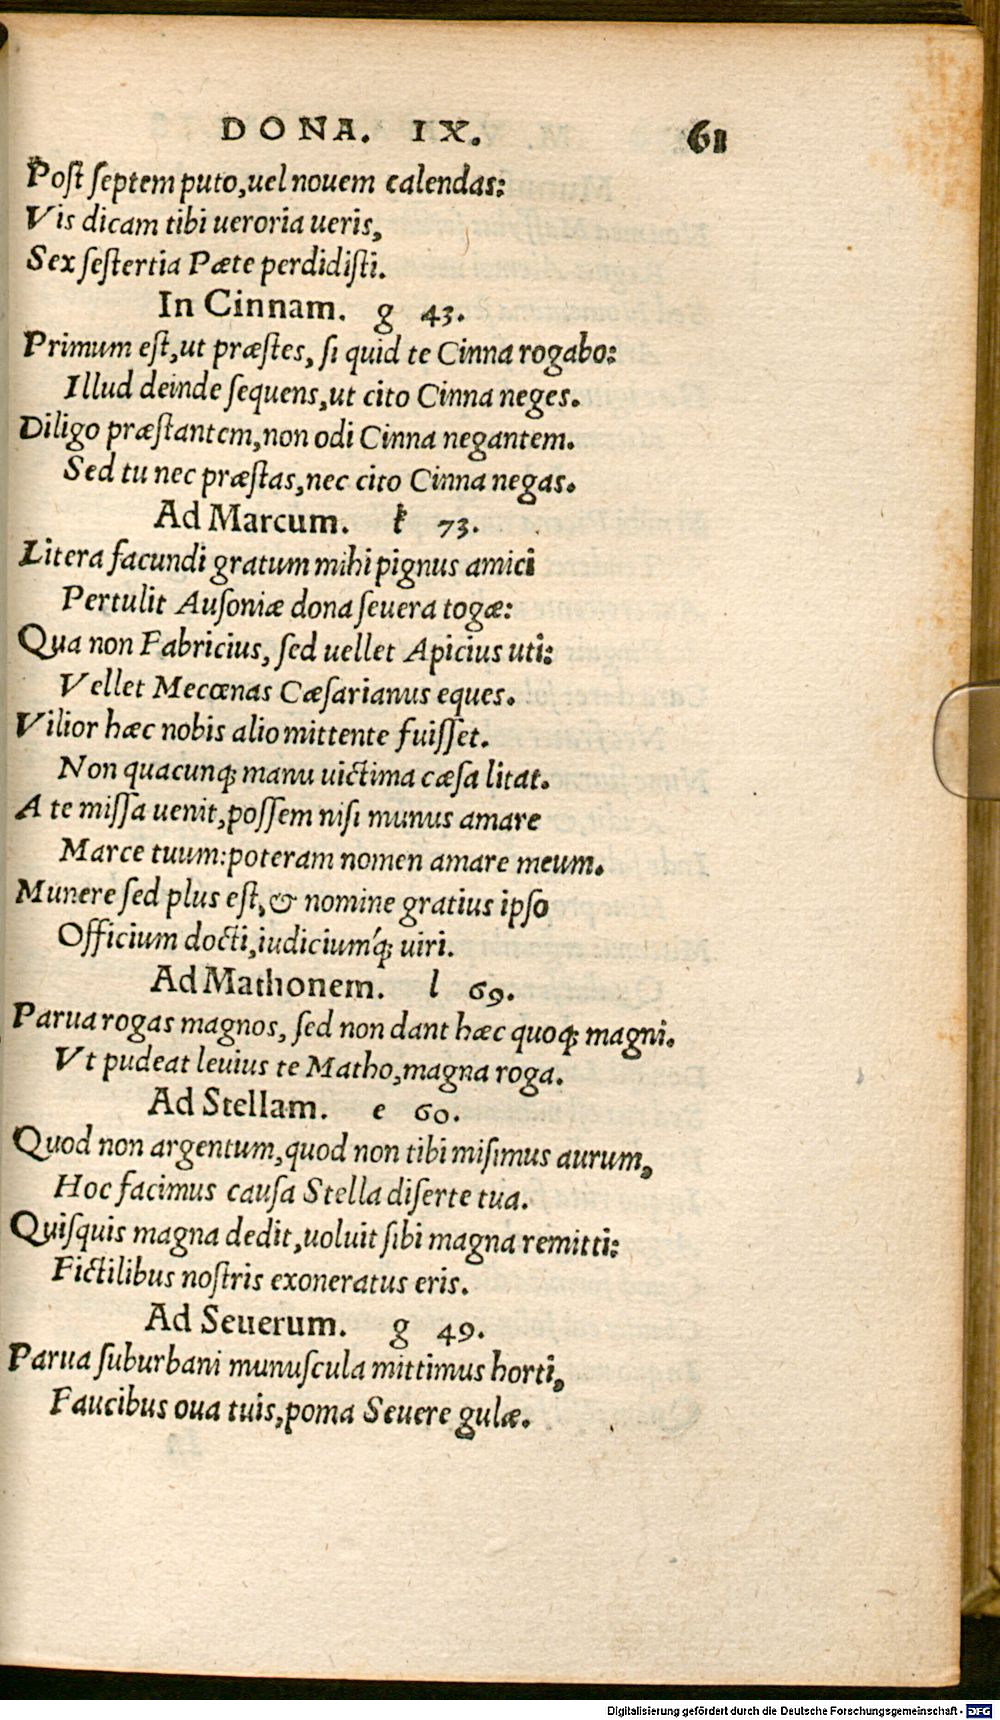 DONA. IX. 61
Post septem puto,uel nouem calendas:
Vis dicam tibi ueroria ueris,
Sex sestertia Pæte perdidisti.
In Cinnam. g 43.
Primum est,ut præstes, si quid te Cinna rogabo:
Illud deinde sequens,ut cito Cinna neges.
Diligo præstantem,non odi Cinna negantem.
Sed tu nec præstas,nec cito Cinna negas.
Ad Marcum. k 73.
Litera facundi gratum mihi pignus amici
Pertulit Ausoniæ dona seuera togæ:
Qua non Fabricius, sed uellet Apicius uti:
Vellet Mecœnas Cæsarianus eques.
Vilior hæc nobis alio mittente fuisset.
Non quacunq; manu uictima cæsa litat.
A te missa uenit,possem nisi munus amare
Marce tuum:poteram nomen amare meum.
Munere sed plus est,& nomine gratius ipso
Officium docti,iudicium´q; uiri.
Ad Mathonem. l 69.
Parua rogas magnos, sed non dant hæc quoq; magni.
Vt pudeat leuius te Matho,magna roga.
Ad Stellam. e 60.
Quod non argentum,quod non tibi misimus aurum,
Hoc facimus causa Stella diserte tua.
Quisquis magna dedit,uoluit sibi magna remitti:
Fictilibus nostris exoneratus eris.
Ad Seuerum. g 49.
Parua suburbani munuscula mittimus horti,
Faucibus oua tuis,poma Seuere gulæ.
Digitalisierung gefördert durch die Deutsche Forschungsgemeinschaft - DFG